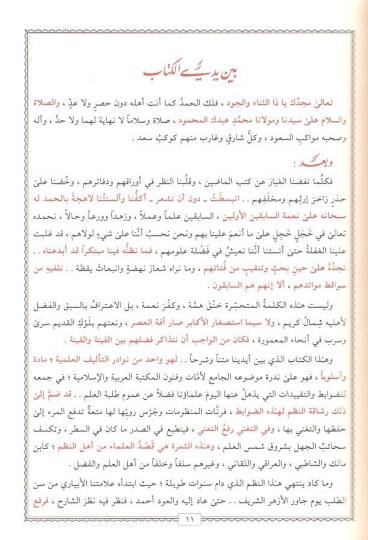 بين يدي الكتاب
تعالىٰ مجدُك يا ذا الثناء والجود ، فلك الحمدُ كما أنت أهله دون حصرٍ ولا عدٍّ ، والصلاة
والسلام علىٰ سيدنا ومولانا محمَّدٍ عبدِك المحمود ، صلاة وسلاماً لا نهاية لهما ولا حدّ ، وآله
وصحبه مواكبِ السعود ، وكلُّ شارقٍ وغاربٍ منهم كوكبُ سعد .
وبعد :
فكلَّما نفضنا الغبارَ عن كتب الماضين ، وقلَّبنا النظر في أوراقهم ودفاترهم ، وخُضنا علىٰ
حذرٍ زاخرَ إرثِهم ومخلَّفِهم .. انبسطتْ ـ دون أن نشعر ـ أكفُّنا وألسنتُنا لاهجةً بالحمد لله
سبحانه علىٰ نعمة السابقين الأولين ، السابقين علماً وعملاً ، وزهداً وورعاً وحالاً ، نحمده
تعالىٰ في خَجَلٍ خَجِلٍ علىٰ ما أنعمَ علينا بهم ونحن نحسب أنَّنا علىٰ شيءٍ لولاهم ، قد غلبت
علينا الغفلةُ حتىٰ أنستنا أنَّنا نعيشُ في فَضْلة علومهم ، فما نظنُّه فينا مبتكراً قد أبدعناه ..
نجدُهُ علىٰ حينِ بحثٍ وتنقيبٍ من فُتاتهم ، وما نراه شعارَ نهضةٍ وانبعاثَ يقظة .. نلفيهِ من
سواقط موائدهم ، ألا إنهم هم السابقون .
وليست هذه الكلمةُ المتحسِّرة حنْقَ هِمَّة ، وكفْرَ نعمة ، بل الاعترافُ بالسبق والفضل
لأهليه شِمالُ كريم ، ولا سيما استصغار الأكابر صار آفة العصر ، ونعتهم بِلَوْكِ القديم سرىٰ
وسرب في أنحاء المعمورة ، فكان من الواجب أن نتذاكر فضلهم بين الفينة والفينة .
وهذا الكتاب الذي بين أيدينا متناً وشرحاً .. لهو واحد من نوادر التآليف العلمية ؛ مادة
وأسلوباً ، فهو علىٰ ندرة موضوعه الجامع لأمَّات وفنون المكتبة العربية والإسلامية ؛ في جمعه
للضوابط والتقييدات التي يذهلُ عنها اليومَ علماؤنا فضلاً عن عموم طلبة العلم .. قد ضمَّ إلىٰ
ذلك رشاقةَ النظم لهذه الضوابط ، فرنَّات المنظومات وجَرْس رويِّها لها متعةٌ تدفع المرء إلىٰ
حفظها والتغني بها ، وفي التغني رفعُ التعني ، فينطبع في الصدر ما كان في السطر ، وتنكسف
سحائبُ الجهل بشروق شمس العلم ، وهذه الثمرة هي قَصْدُ العلماء من أهل النظم ؛ كابن
مالك والشاطبي ، والعراقي واللقاني ، وغيرهم سلفاً وخلفاً من أهل العلم والفضل .
وما كاد ينتهي هذا النظم الذي دام سنوات طويلة ؛ حيث ابتدأه علامتنا الأبياري من سن
الطلب يوم جاور الأزهر الشريف .. حتىٰ عاد إليه والعود أحمد ، فنظر فيه نظرَ الشارح ، فرفع
١١